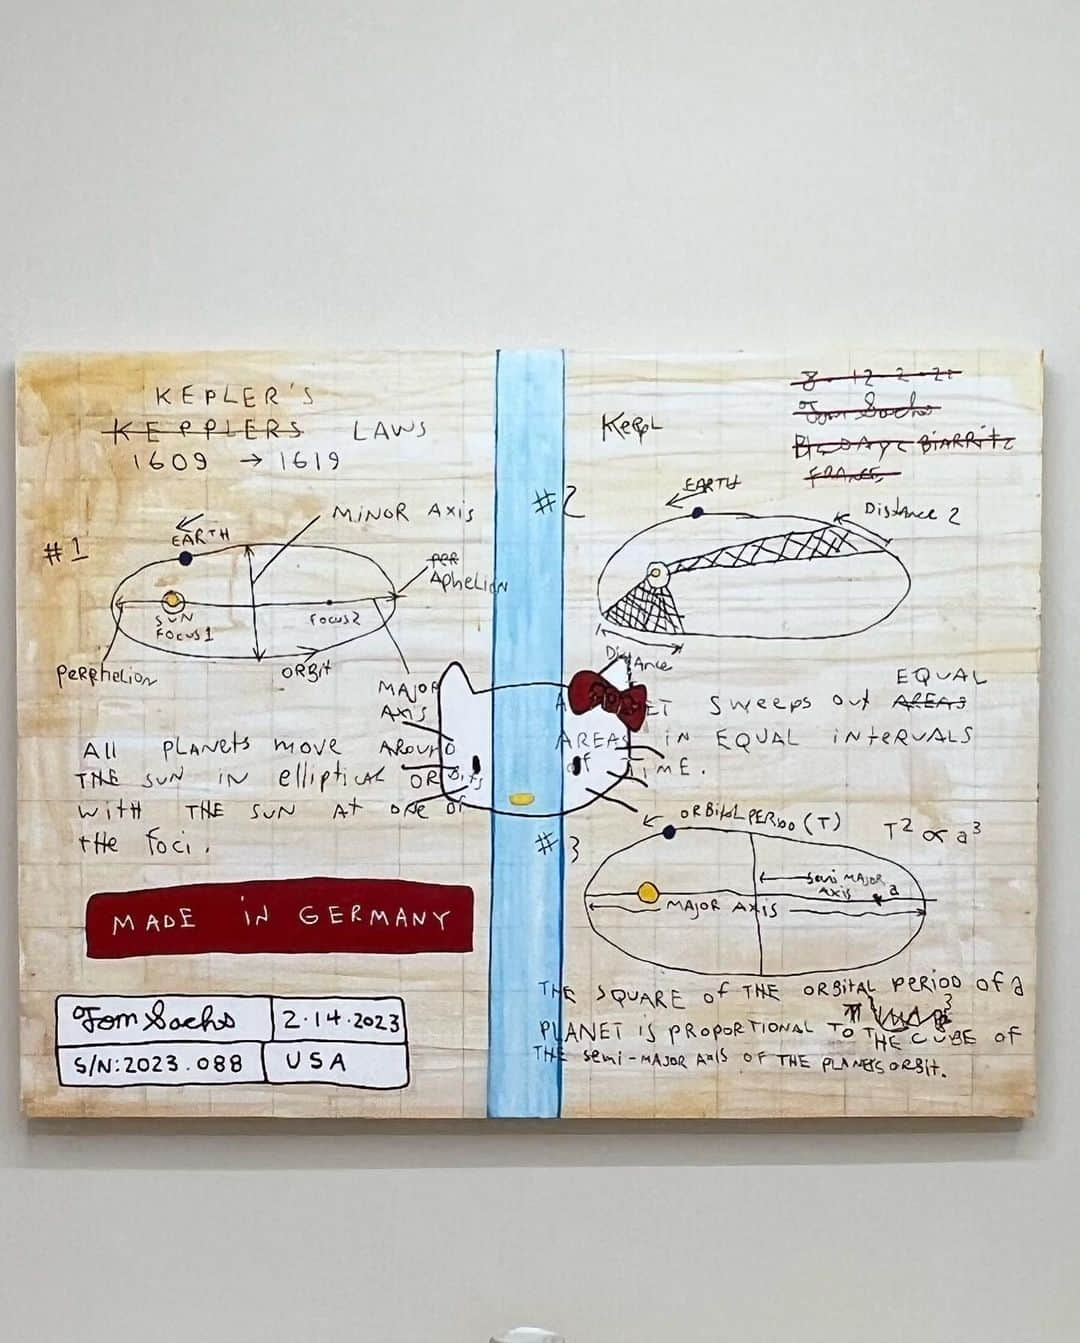 KEPLER'S
KEPPLERS LAWS
1609 → 1619
#1
EARTH
MINOR AXIS
PER
APheLION
SUN
FOCUS 1
FOCUS 2
PerPhelION
ORBIT
MAJOR
AXIS
All PLANETS MOVE AROUND
THE SUN IN elliptical ORBITS
WITH THE SUN AT ONE OF
tHE FOCI.
MADE IN GERMANY
Tom Sachs
2.14.2023
S/N:2023.088
USA
KEPPL
8.12.2.21
Tom Sachs
BIARRITZ
FRANCE
#2
EARTH
DISTANCE 2
DISTANCE
EQUAL
A SWEEPS OUT AREAS
AREAS IN EQUAL INTERVALS
OF TIME.
#3
ORBITAL PERIOD (T)
T² ∝ a³
SEMI MAJOR
AXIS
a
MAJOR AXIS
THE SQUARE OF THE ORBITAL PERIOD OF A
PLANET IS PROPORTIONAL TO THE CUBE OF
THE SEMI-MAJOR AXIS OF THE PLANETS ORBIT.